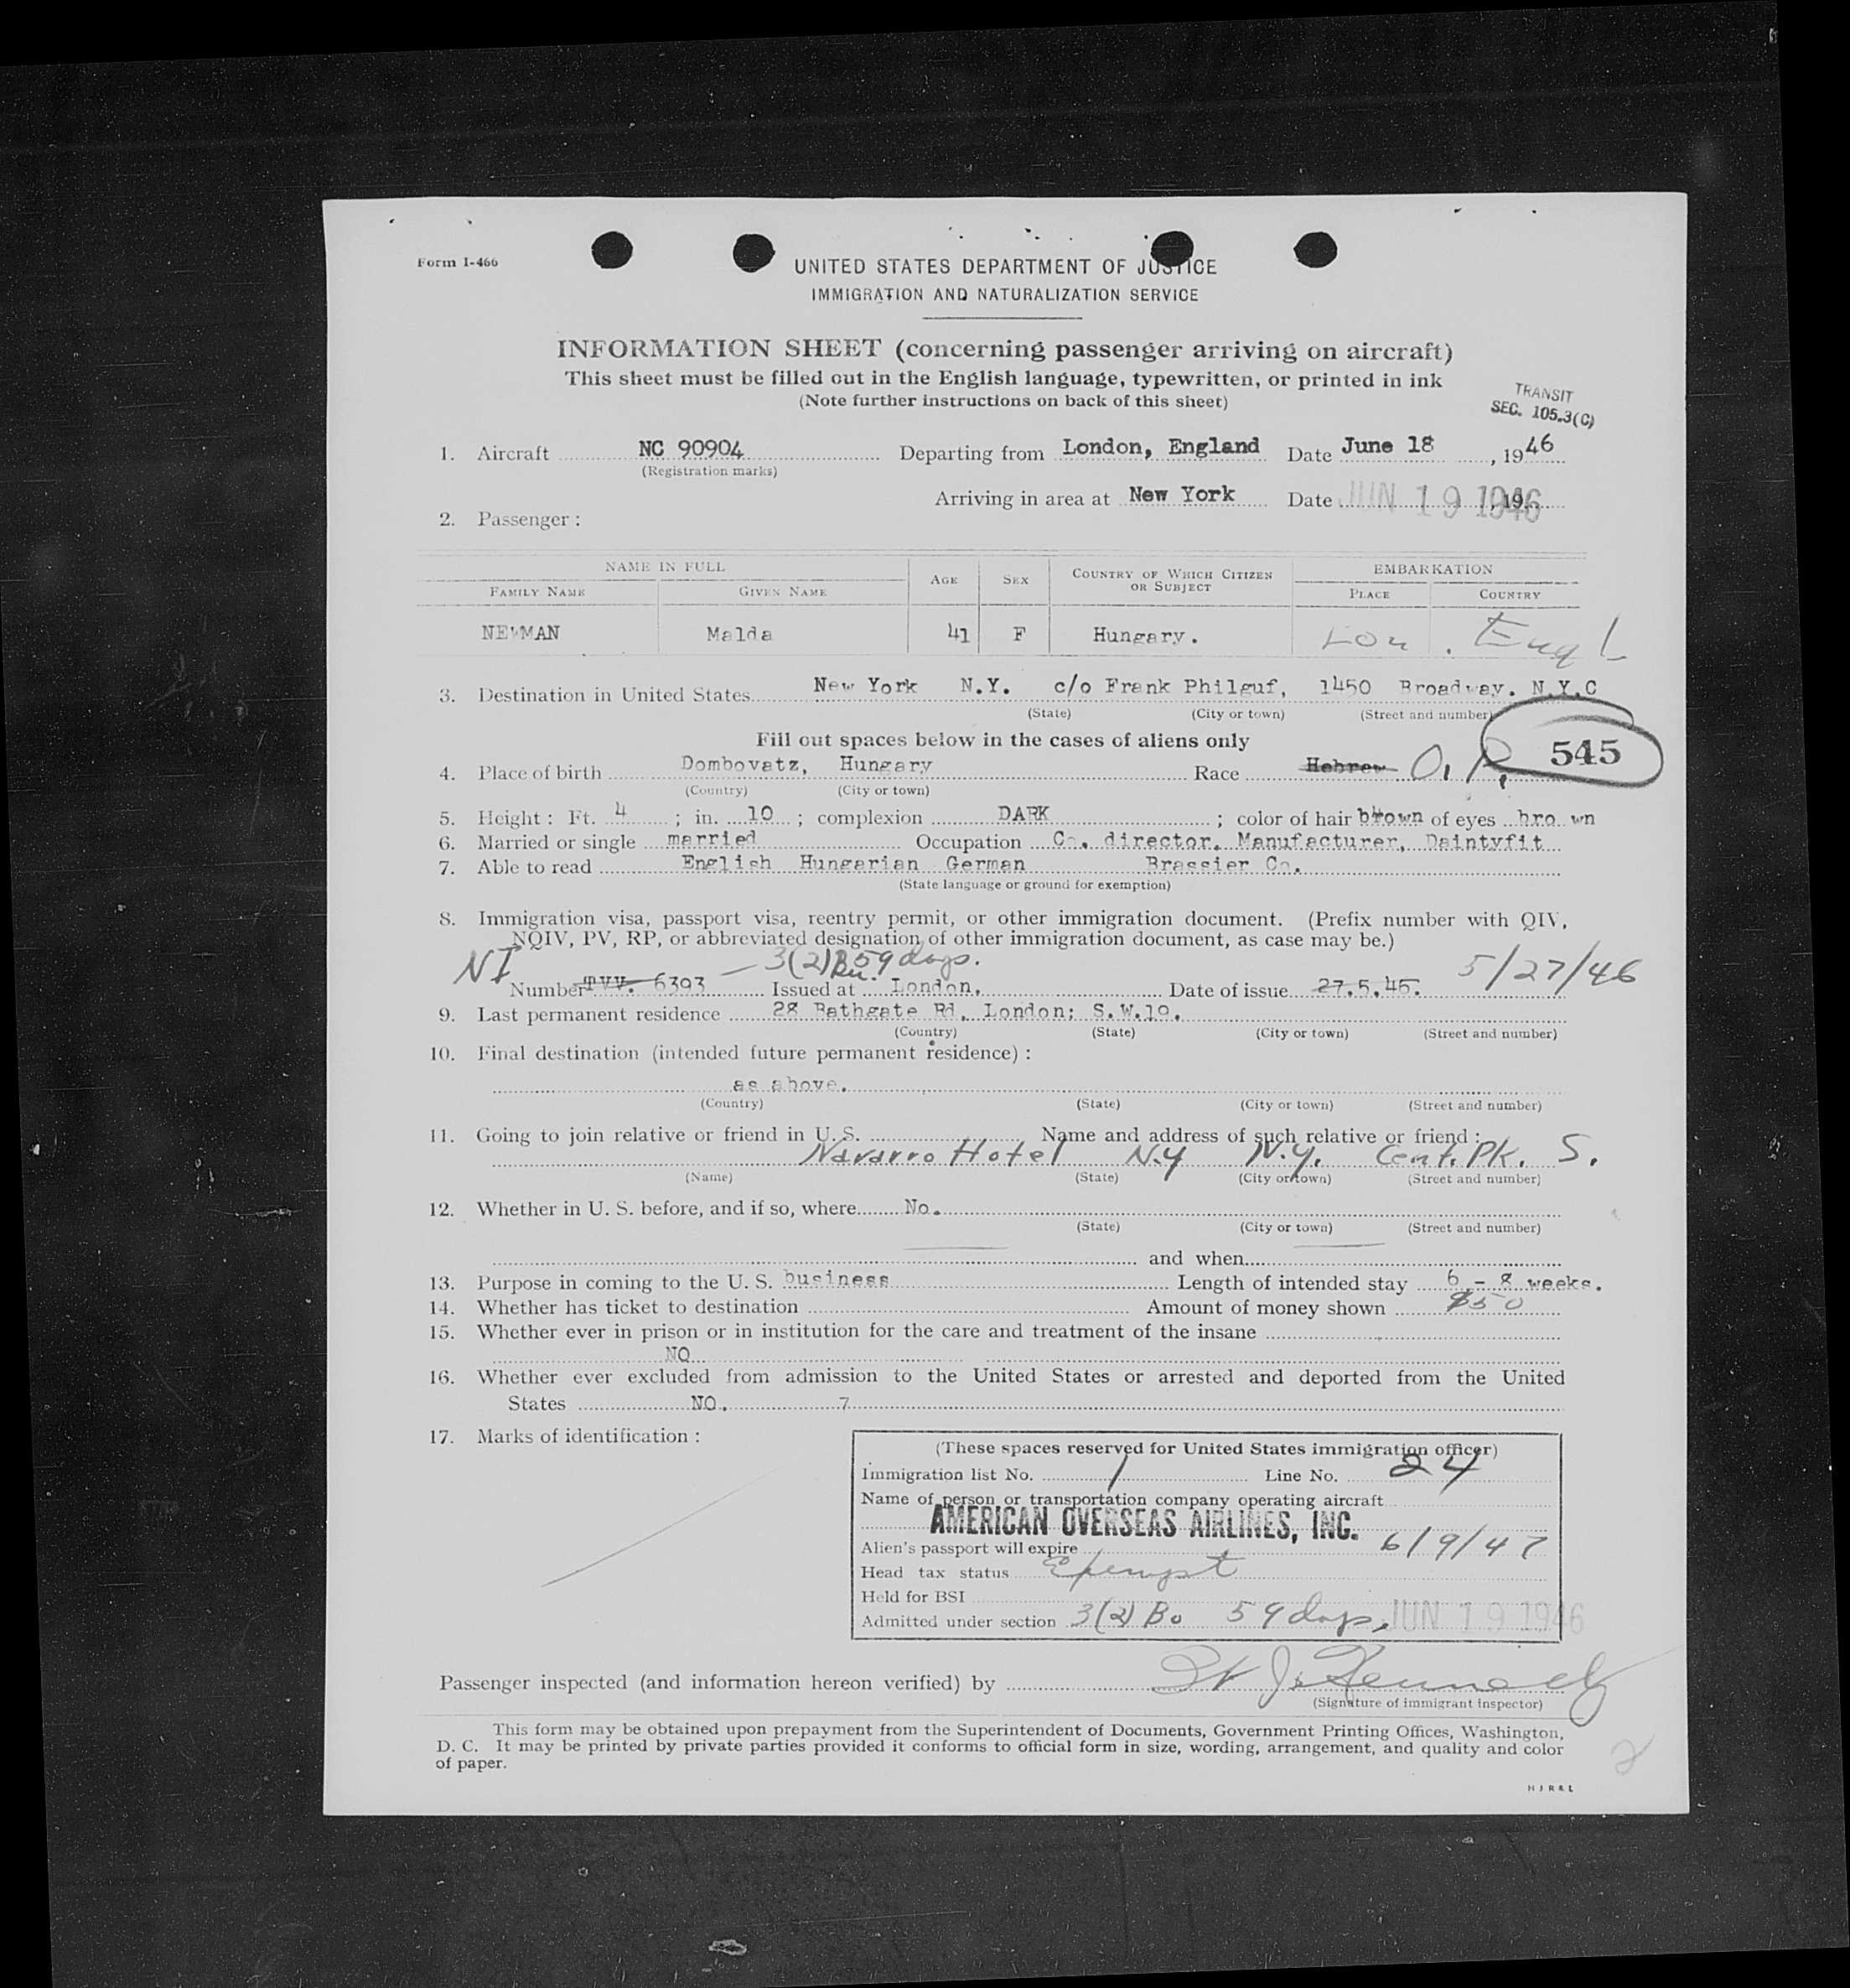 Form I-466
UNITED STATES DEPARTMENT OF JUSTICE
IMMIGRATION AND NATURALIZATION SERVICE
INFORMATION SHEET (concerning passenger arriving on aircraft)
This sheet must be filled out in the English language, typewritten, or printed in ink
(Note further instructions on back of this sheet)
TRANSIT
SEC. 105.3(C)
1. Aircraft NC 90904 Departing from London, England Date June 18, 1946
(Registration marks)
Arriving in area at New York Date JUN 19 1946 , 19
2. Passenger :
NAME IN FULL AGE SEX COUNTRY OF WHICH CITIZEN OR SUBJECT EMBARKATION
FAMILY NAME GIVEN NAME PLACE COUNTRY
NEWMAN Malda 41 F Hungary. Lon. Engl
3. Destination in United States New York N.Y. c/o Frank Philguf, 1450 Broadway. N.Y.C
(State) (City or town) (Street and number)
Fill out spaces below in the cases of aliens only
545
4. Place of birth Dombovatz, Hungary Race Hebrew
(Country) (City or town)
5. Height : Ft. 4 ; in. 10 ; complexion DARK ; color of hair brown of eyes bro wn
6. Married or single married Occupation Co. director. Manufacturer, Daintyfit
7. Able to read English Hungarian German Brassier Co.
(State language or ground for exemption)
8. Immigration visa, passport visa, reentry permit, or other immigration document. (Prefix number with QIV,
NQIV, PV, RP, or abbreviated designation of other immigration document, as case may be.)
NI — 3(2) 59 days. 5/27/46
Number TVV. 6393 Issued at London. Date of issue 27.5.45.
9. Last permanent residence 28 Bathgate Rd. London; S.W.19.
(Country) (State) (City or town) (Street and number)
10. Final destination (intended future permanent residence) :
as above.
(Country) (State) (City or town) (Street and number)
11. Going to join relative or friend in U. S. Name and address of such relative or friend :
Navarro Hotel N.Y N.Y. Cent. Pk. S.
(Name) (State) (City or town) (Street and number)
12. Whether in U. S. before, and if so, where No.
(State) (City or town) (Street and number)
and when
13. Purpose in coming to the U. S. business Length of intended stay 6 - 8 weeks.
14. Whether has ticket to destination Amount of money shown $50
15. Whether ever in prison or in institution for the care and treatment of the insane
NO
16. Whether ever excluded from admission to the United States or arrested and deported from the United
States NO. 7
17. Marks of identification :
(These spaces reserved for United States immigration officer)
Immigration list No. 1 Line No. 24
Name of person or transportation company operating aircraft
AMERICAN OVERSEAS AIRLINES, INC.
Alien's passport will expire 6/9/47
Head tax status Exempt
Held for BSI
Admitted under section 3(2) Bo 59 days, JUN 19 1946
Passenger inspected (and information hereon verified) by J. Kennedy
(Signature of immigrant inspector)
This form may be obtained upon prepayment from the Superintendent of Documents, Government Printing Offices, Washington,
D. C. It may be printed by private parties provided it conforms to official form in size, wording, arrangement, and quality and color
of paper.
2